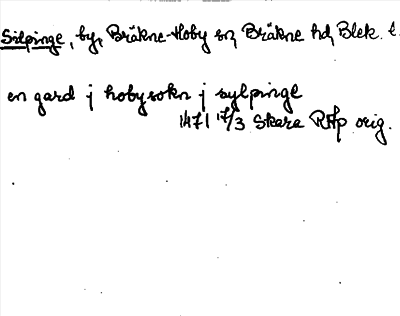 Silpinge, by, Bräkne-Hoby sn, Bräkne hd, Blek. l.
en gard j hoby sokn j sylpinge
1471 17/3 Skara RAp orig.